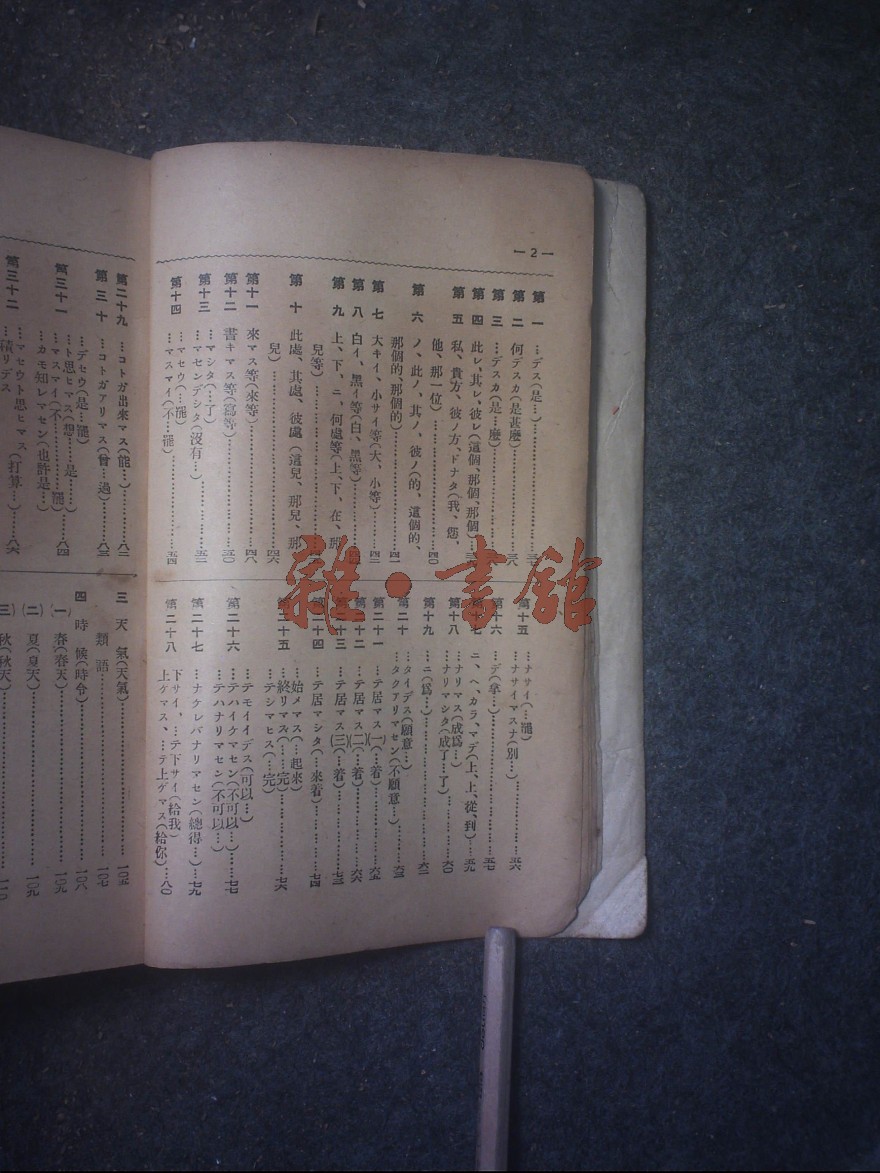 — 2 —
第一 …デス(是…)
第二 何デスカ(是甚麼)…三八
第三 …デスカ(是…麼)
第四 此レ、其レ、彼レ(這個、那個、那個)
第五 私、貴方、彼ノ方、ドナタ(我、您、
他、那一位)…四〇
第六 ノ、此ノ、其ノ、彼ノ(的、這個的、
那個的、那個的)…四一
第七 大キイ、小サイ等(大、小等)…四三
第八 白イ、黑イ等(白、黑等)
第九 上、下、ニ、何處等(上、下、在、那
兒等)
第十 此處、其處、彼處(這兒、那兒、那
兒)…四六
第十一 來マス等(來等)…四八
第十二 書キマス等(寫等)…五〇
第十三 …マシタ(…了)
…マセンデシタ(沒有…)…五二
第十四 …マセウ(…罷)
…マスマイ(不…罷)…五四
第十五 …ナサイ(…罷)
…ナサイマスナ(別…)…五六
第十六 …デ(拏…)…五七
第十七 ニ、ヘ、カラ、マデ(上、上、從、到)…五九
第十八 …ナリマス(成爲…)
…ナリマシタ(成了…了)…六〇
第十九 …ニ(爲…)…六二
第二十 …タイデス(願意…)
…タクアリマセン(不願意…)…六三
第二十一 …テ居マス(一)(…着)…六五
第二十二 …テ居マス(二)(…着)…六六
第二十三 …テ居マス(三)(…着)…七三
第二十四 …テ居マシタ(…來着)…七四
第二十五 …始メマス(…起來)
…終リマス(…完)…七六
…テシマヒス(…完)
第二十六 …テモイイデス(可以…)
…テハイケマセン(不可以…)…七七
…テハナリマセン(不可以…)
第二十七 …ナケレバナリマセン(總得…)…七九
第二十八 下サイ、…テ下サイ(給我)
上ゲマス、…テ上ゲマス(給你)…八〇
第二十九 …コトガ出來マス(能…)…八二
第三十 …コトガアリマス(曾…過)…八三
…デセウ(是…罷)
第三十一 …ト思ヒマス(想…是…)
…マスマイ(不…罷)…八四
…カモ知レマセン(也許是…)
第三十二 …マセウト思ヒマス(打算…)…八六
…積リデス
三 天氣(天氣)…一〇五
類語…一〇七
四 時候(時令)…一〇八
(一) 春(春天)…一〇九
(二) 夏(夏天)…一〇九
(三) 秋(秋天)…一一〇
雜·書館